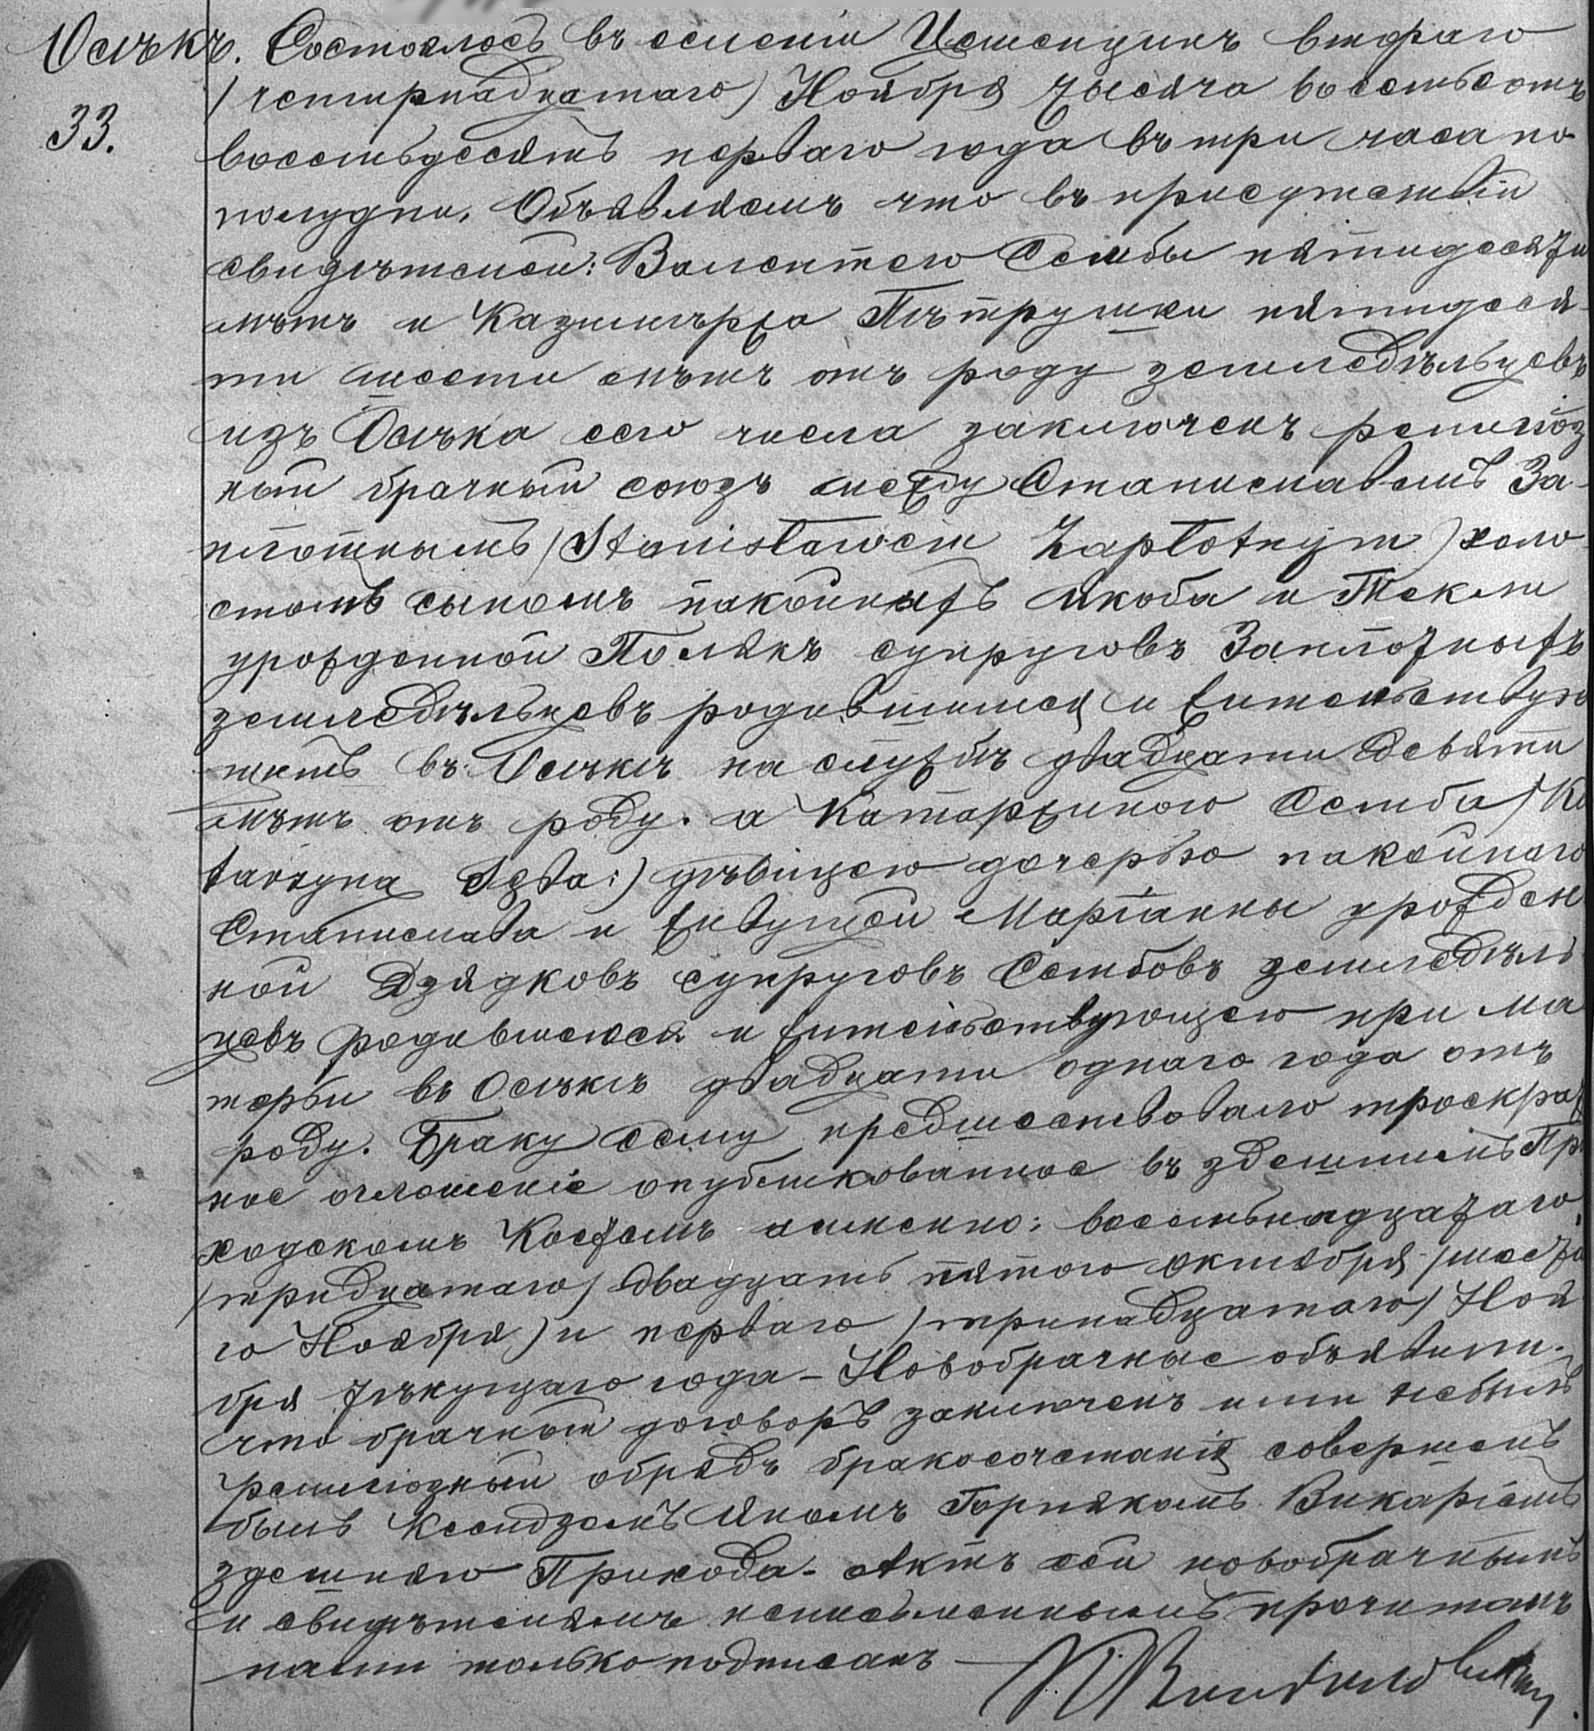 Осѣкъ. Состоялось въ селеніи Цѣшенцинъ втораго
33.
/четырнадцатаго/ Ноября тысяча восемьсотъ
восемьдесятъ перваго года въ три часа по
полудни. Объявляемъ что въ присутствіи
свидѣтелей: Валентего Сембы пятидесяти
лѣтъ и Казимѣржа Пѣтрушки пятидеся-
ти шести лѣтъ отъ роду земледѣльцевъ
изъ Осѣка сего числа заключенъ религіоз
ный брачный союзъ между Станиславомъ За-
плотнымъ /Stanisławem Zapłotnym/ холо
стымъ сыномъ покойныхъ Якоба и Текли
урожденной Полякъ супруговъ Заплотныхъ
земледѣльцевъ родившимся и жительствую
щимъ въ Осѣкѣ на службѣ двадцати девяти
лѣтъ отъ роду. а Катаржиною Семба /Ka
tarzyna Sęba:/ дѣвицею дочерью покойнаго
Станислава и живущей Маріанны урожден
ной Дзядковъ супруговъ Сембовъ земледѣль
цевъ родившеюся и жительствующею при ма
тери въ Осѣкѣ двадцати одного года отъ
роду. Браку сему предшествовало троекрат
ное оглошеніе опубликованное въ здешнимъ При
ходскомъ Костелѣ именно: восемьнадцатаго
/тридцатаго/ двадцать пятого Октября /шеста
го Ноября/ и перваго /тринадцатаго/ Ноя
бря тѣкущаго года – Новобрачные объявили
что брачный договоръ заключенъ ими небылъ
религіозный обрядъ бракосочетанія совершенъ
былъ Ксендзомъ Яномъ Горнякомъ Викаріемъ
здешняго Прихода – Актъ сей новобрачнымъ
и свидѣтелямъ неписьменнымъ прочитанъ
нами только подписанъ